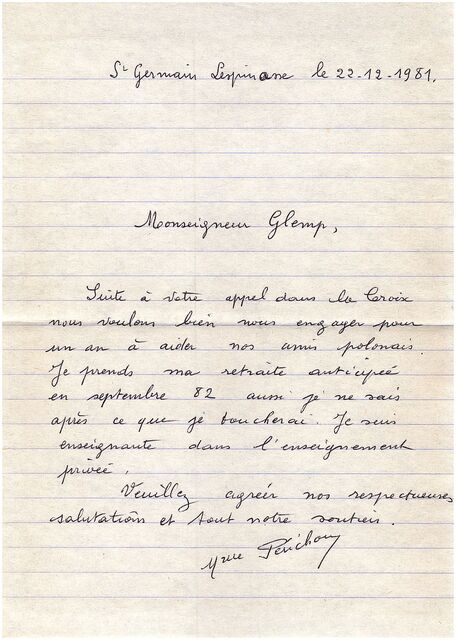 St Germain Lespinasse le 22-12-1981.
Monseigneur Glemp,
Suite à votre appel dans la Croix
nous voulons bien nous engager pour
un an à aider nos amis polonais.
Je prends ma retraite anticipée
en septembre 82 aussi je ne sais
après ce que je toucherai. Je suis
enseignante dans l'enseignement
privée.
Veuillez agréer nos respectueuses
salutations et tout notre soutien.
Mme